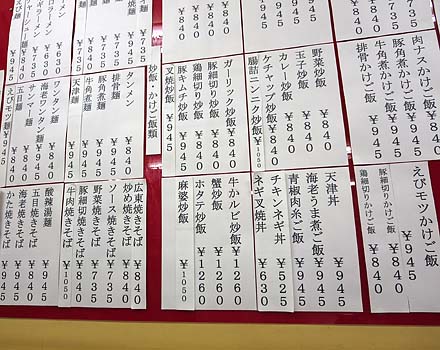 肉ナスかけご飯 ￥945
牛角煮かけご飯 ￥945
豚角煮かけご飯 ￥945
排骨かけご飯 ￥840
野菜炒飯 ￥840
玉子炒飯 ￥735
カレー炒飯 ￥840
ケチャップ炒飯 ￥840
腸詰ニンニク炒飯 ￥1050
ガーリック炒飯 ￥840
豚細切り炒飯 ￥840
鶏細切り炒飯 ￥840
豚キムチ炒飯 ￥945
叉焼炒飯 ￥945
炒飯・かけご飯類
タンメン ￥735
排骨麺 ￥840
豚角煮麺
牛角煮麺
天津麺
ワンタン麺
海老ワンタン麺
サンマー麺
五目麺
えびモツ麺 ￥945
えびモツかけご飯 ￥945
豚細切りかけご飯 ￥840
鶏細切りかけご飯 ￥840
天津丼 ￥945
海老うま煮ご飯 ￥945
青椒肉糸ご飯 ￥945
チキンネギ丼 ￥525
ネギ叉焼丼 ￥630
牛カルビ炒飯 ￥1260
蟹炒飯 ￥1260
ホタテ炒飯 ￥1260
麻婆炒飯 ￥945
広東焼きそば ￥840
炒め焼きそば ￥840
ソース焼きそば ￥735
野菜焼きそば ￥735
豚細切焼きそば ￥840
牛肉焼きそば ￥1050
酸辣湯麺 ￥945
五目焼きそば ￥945
海老焼きそば ￥945
かた焼きそば ￥945